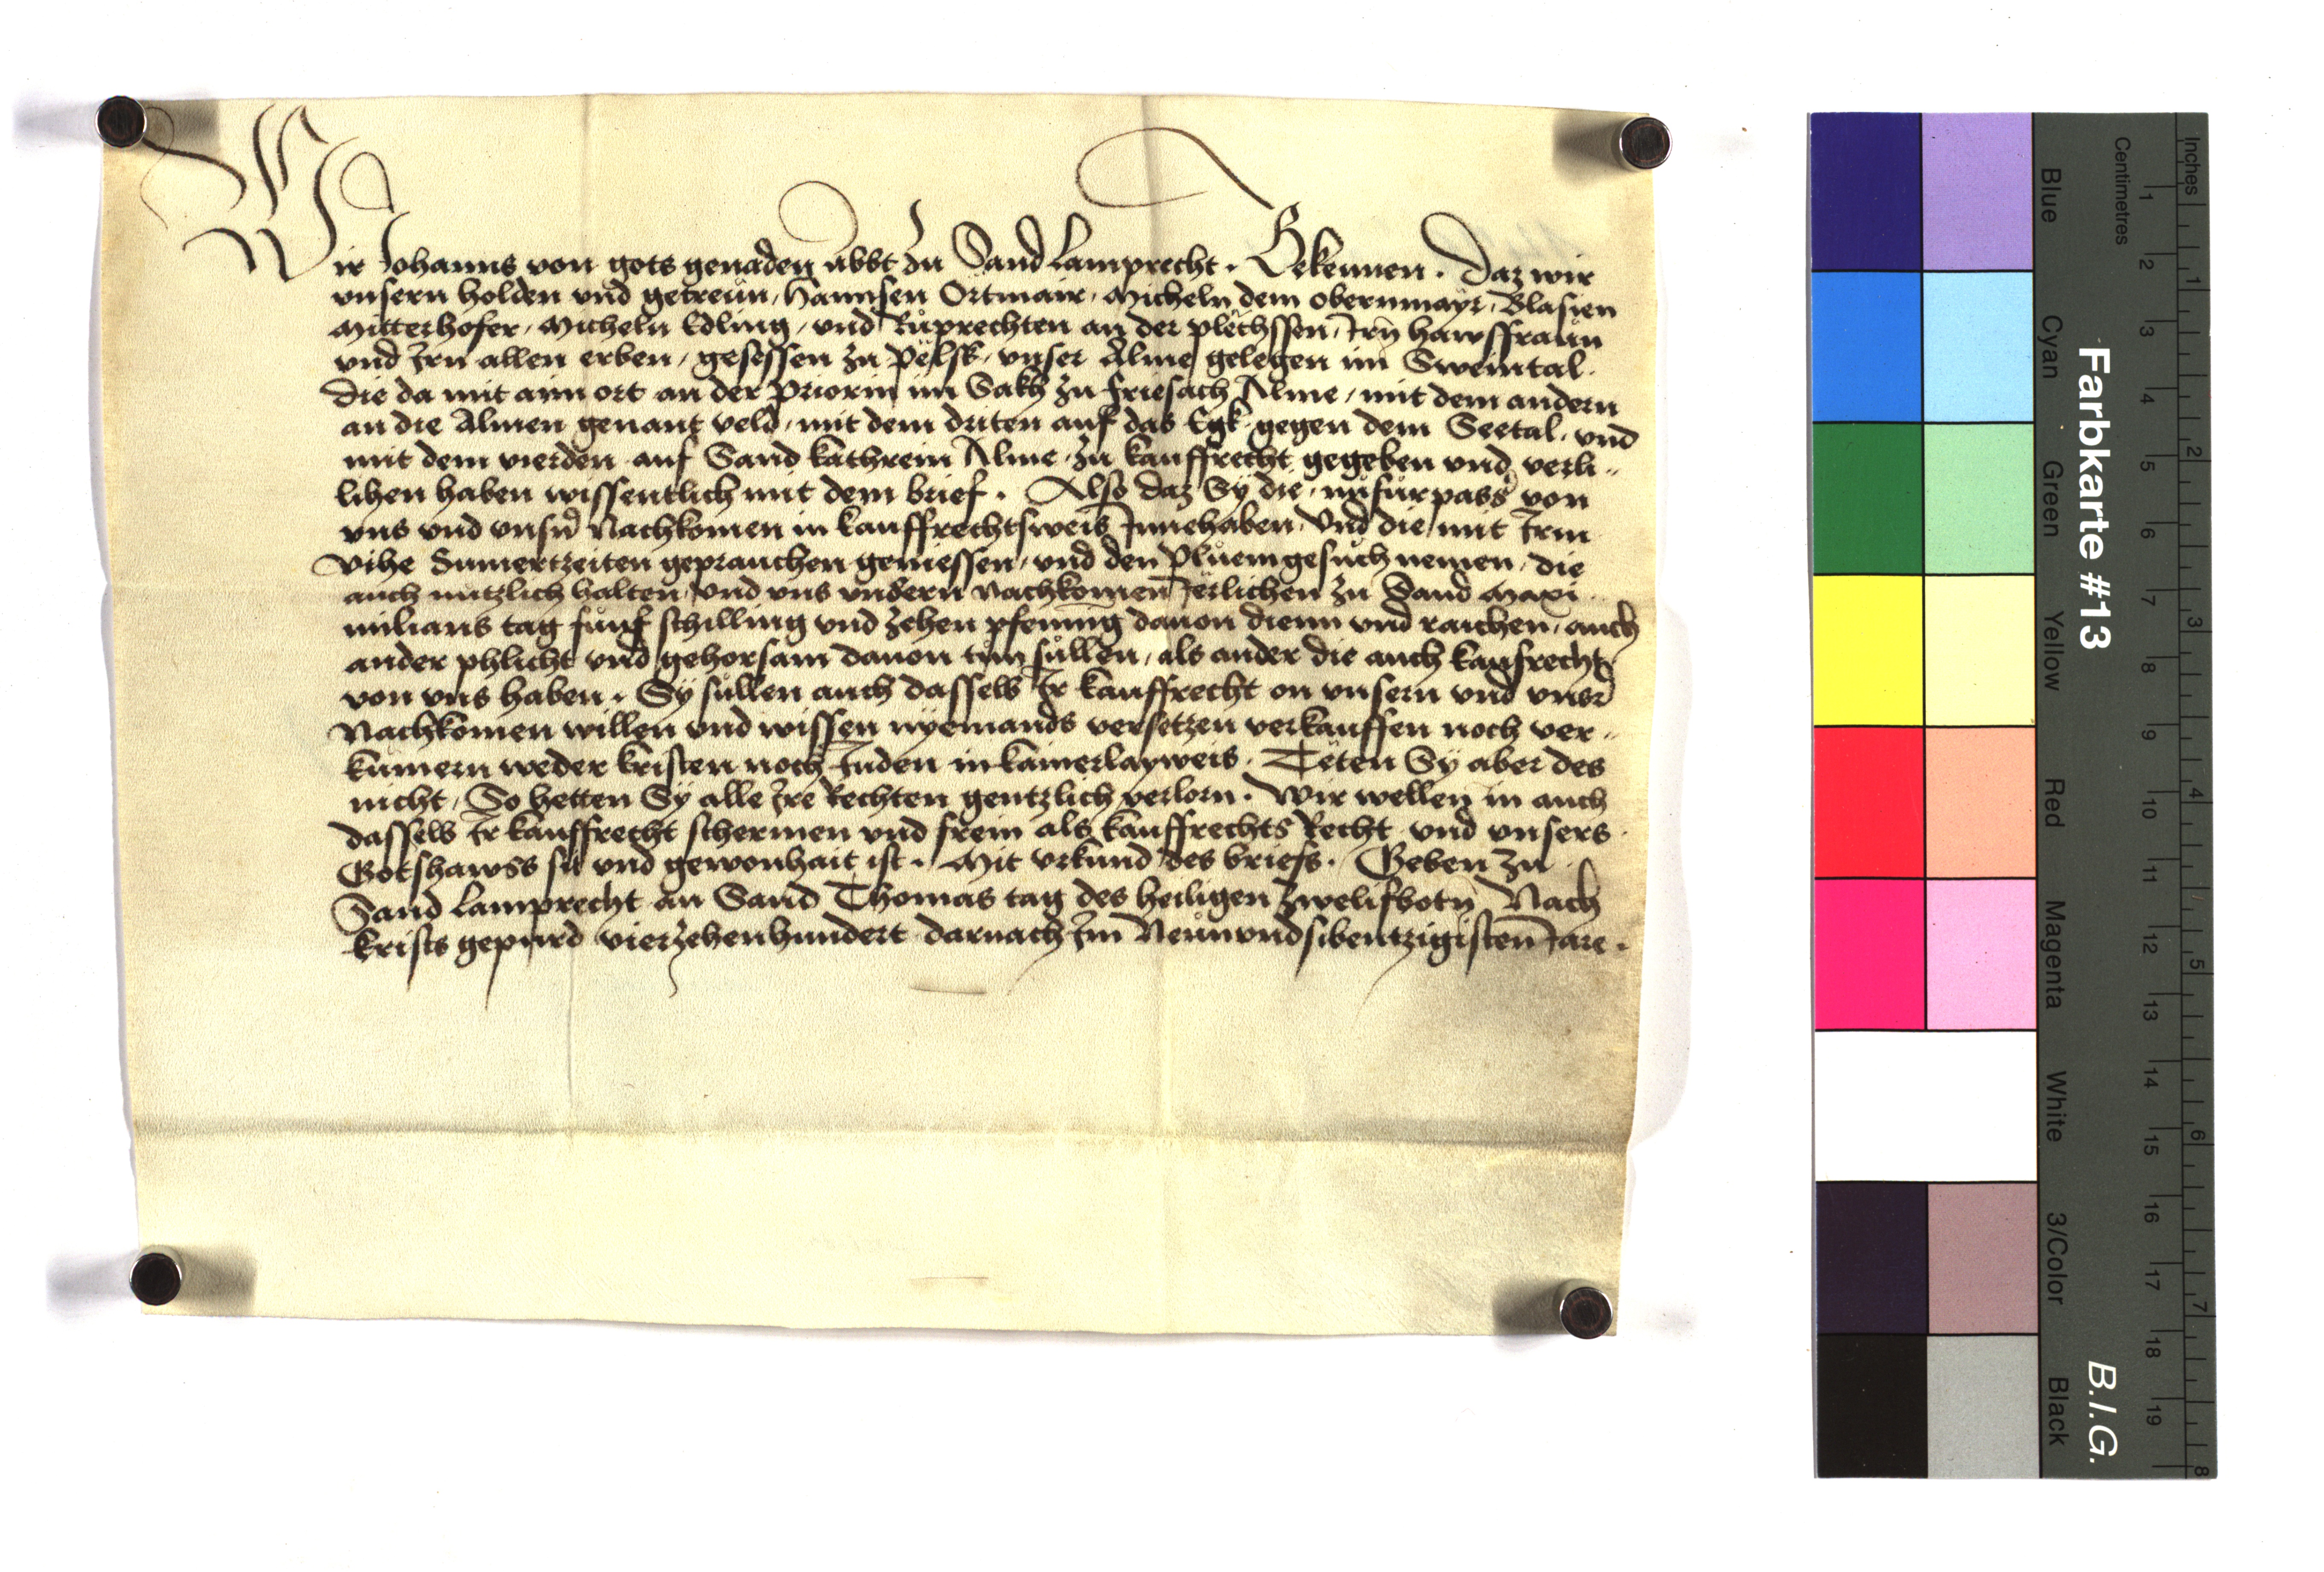 Wir Johanns von gots genaden abbt zu Sand Lamprecht. Bekennen. Daz wir
vnsern holden vnd getreůn, Hannsen Ortmair, Micheln dem obernmayr, Blasien
Mitterhofer, Micheln Edling, vnd Růprechten an der plëchssen, Irn hawsfraůn
vnd Irn allen erben, gesessen zu Pëlsk, vnser Alme gelegen im Sweintal.
die da mit aim ort an der Priorin im Sakh zu friesach Alme, mit dem andern
an die Almen genant veld, mit dem driten auf das Egk gegen dem Seetal, vnd
mit dem vierden auf Sand kathrein Alme, zu kauffrecht gegeben vnd verli„
lihen haben wissentlich mit dem brief. Also daz Sÿ die, nůfůrpass von
vns vnd vnsn̄ Nachkomen in kauffrechtsweis Innehaben, Vnd die mit Irm
vihe Sumertzeiten geprauchen geniessen, vnd den Plůemgesůch nemen, die
auch nutzlich halten, vnd vns vnsern nachkomen Jërlichen zu Sand Maxi„
milians tag fůnf schilling vnd zehen pfennig dauon dienn vnd raichen, auch
ander phlicht vnd gehorsam dauon tun sůllen, als ander die auch kaufrecht
von vns haben. Sÿ sůllen auch dasselb Ir kauffrecht on vnsern vnd vnsr̄
Nachkomen willen vnd wissen nÿemands versetzen verkauffen noch ver„
kůmern weder kristen noch Juden in kainerlayweis. Tëten Sÿ aber des
nicht, So hetten Sÿ alle Ire Rechten gentzlich verlorn. Wir wellen in auch
dasselb Ir kauffrecht schermen vnd frein als kauffrechts Recht vnd vnsers
Gotshawss sit vnd gewonhait ist. Mit vrkund des briefs. Geben zu
Sand Lamprecht an Sand Thomas tag des heiligen Zwelifbotn̄ Nach
krists gepurd vierzehenhundert darnach Im Neůnvndsibentzigisten Jare.
Farbkarte #13
B.I.G.
Blue Cyan Green Yellow Red Magenta White 3/Color Black
Centimetres
1 2 3 4 5 6 7 8 9 10 11 12 13 14 15 16 17 18 19
Inches
1 2 3 4 5 6 7 8